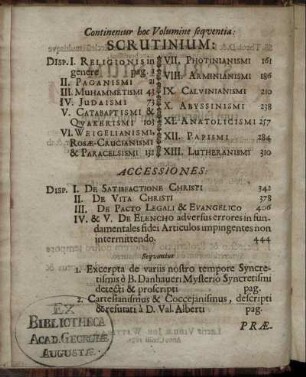 Continentur hoc Volumine sequentia:
SCRUTINIUM:
DISP. I. RELIGIONIS in
genere pag. 1
II. PAGANISMI 21
III. MUHAMMETISMI 43
IV. JUDAISMI 73
V. CATABAPTISMI &
QVAKERISMI 103
VI. WEIGELIANISMI,
ROSÆ-CRUCIANISMI
& PARACELSISMI 131
VII. PHOTINIANISMI 161
VIII. ARMINIANISMI 186
IX. CALVINIANISMI 210
X. ABYSSINISMI 238
XI. ANATOLICISMI 257
XII. PAPISMI 284
XIII. LUTHERANISMI 310
ACCESSIONES:
DISP. I. DE SATISFACTIONE CHRISTI 342
II. DE VITA CHRISTI 378
III. DE PACTO LEGALI & EVANGELICO 406
IV. & V. DE ELENCHO adversus errores in fun-
damentales fidei Articulos impingentes non
intermittendo. 444
Sequuntur
1. Excerpta de variis nostro tempore Syncre-
tismis è B. Danhaueri Mysteriô Syncretismi
detecti & proscripti pag.
2. Cartesianismus & Coccejanismus, descripti
& refutati à D. Val. Alberti pag.
PRÆ-
EX
BIBLIOTHECA
ACAD. GEORGIÆ
AUGUSTÆ.